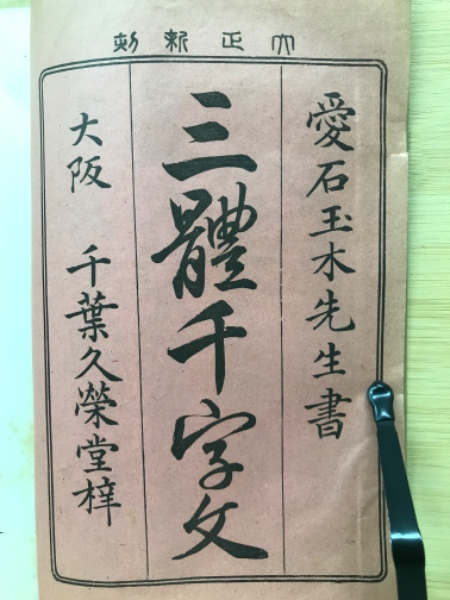 大正新刻
愛石玉木先生書
三體千字文
大阪 千葉久榮堂梓